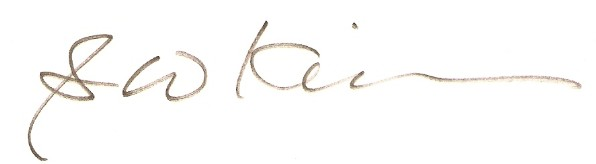 S W Kim